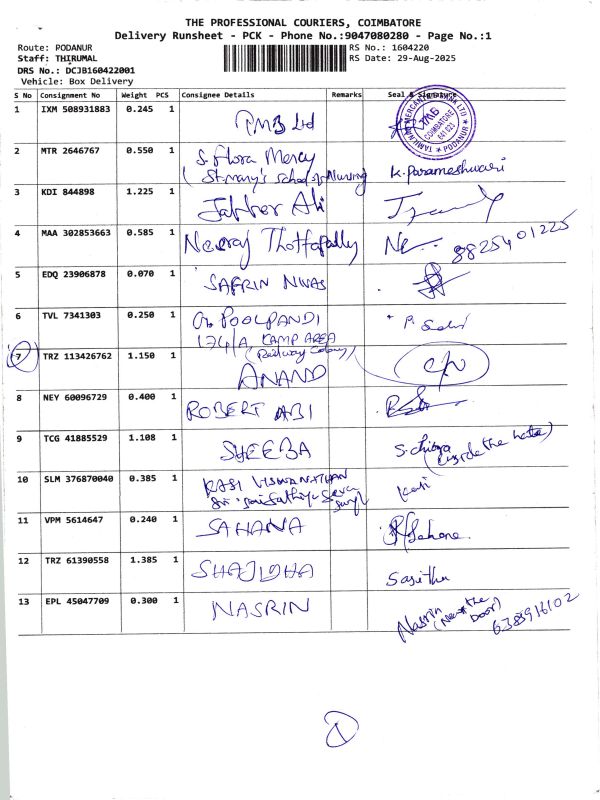 THE PROFESSIONAL COURIERS, COIMBATORE
Delivery Runsheet - PCK - Phone No.:9047080280 - Page No.:1
Route: PODANUR RS No.: 1604220
Staff: THIRUMAL RS Date: 29-Aug-2025
DRS No.: DCJB160422001
Vehicle: Box Delivery
S No Consignment No Weight PCS Consignee Details Remarks Seal & Signature
1 IXM 508931883 0.245 1 TMB Ltd
TAMILNAD MERCANTILE BANK LTD TMB COIMBATORE 641 023 PODANUR
2 MTR 2646767 0.550 1 S. Flora Mercy
(St. mary's school of Nursing K. Parameshwari
3 KDI 844898 1.225 1 Jabber Ali
4 MAA 302853663 0.585 1 Neeraj Thottapally 8825401225
5 EDQ 23906878 0.070 1 SAFRIN NIVAS
6 TVL 7341303 0.250 1 POOLPANDI
174/A, CAMP AREA
(Railway Colony)
7 TRZ 113426762 1.150 1 ANAND
8 NEY 60096729 0.400 1 ROBERT ABI
9 TCG 41885529 1.108 1 SHEEBA
10 SLM 376870040 0.385 1 KASI VISWANATHAN
Sri
11 VPM 5614647 0.240 1 SAHANA
12 TRZ 61390558 1.385 1 SHAJIDHA
13 EPL 45047709 0.300 1 NASRIN Nasrin
(Near the
Door) 6385916102
1